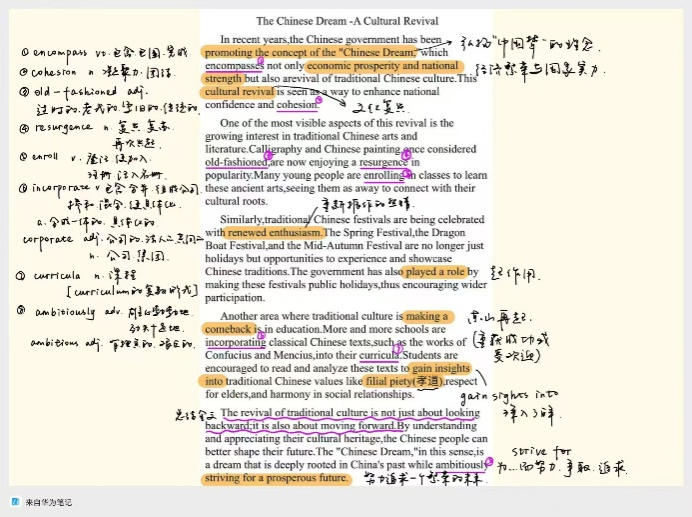 The Chinese Dream -A Cultural Revival
In recent years,the Chinese government has been
promoting the concept of the "Chinese Dream," which
encompasses not only economic prosperity and national
strength but also arevival of traditional Chinese culture.This
cultural revival is seen as a way to enhance national
confidence and cohesion.
One of the most visible aspects of this revival is the
growing interest in traditional Chinese arts and
literature.Calligraphy and Chinese painting,once considered
old-fashioned,are now enjoying a resurgence in
popularity.Many young people are enrolling in classes to learn
these ancient arts,seeing them as away to connect with their
cultural roots.
Similarly,traditional Chinese festivals are being celebrated
with renewed enthusiasm.The Spring Festival,the Dragon
Boat Festival,and the Mid-Autumn Festival are no longer just
holidays but opportunities to experience and showcase
Chinese traditions.The government has also played a role by
making these festivals public holidays,thus encouraging wider
participation.
Another area where traditional culture is making a
comeback is in education.More and more schools are
incorporating classical Chinese texts,such as the works of
Confucius and Mencius,into their curricula.Students are
encouraged to read and analyze these texts to gain insights
into traditional Chinese values like filial piety(孝道),respect
for elders,and harmony in social relationships.
The revival of traditional culture is not just about looking
backward;it is also about moving forward.By understanding
and appreciating their cultural heritage,the Chinese people can
better shape their future.The "Chinese Dream,"in this sense,is
a dream that is deeply rooted in China's past while ambitiously
striving for a prosperous future.
① encompass vt. 包含.包围.完成
② cohesion n 凝聚力.团结
③ old-fashioned adj.
过时的.老式的.守旧的.传统的
④ resurgence n. 复兴.复苏
再次兴起
⑤ enroll v. 登记.使加入.
注册.记入名册
⑥ incorporate v 包含.合并.组成公司
掺和.混合.使具体化
a. 合成一体的.具体化的
corporate adj. 公司的.法人
n. 公司.集团
⑦ curricula n. 课程
[curriculum的复数形式]
⑧ ambitiously adv.
ambitious adj. 有雄心的
弘扬"中国梦"的理念
经济繁荣与国家实力
文化复兴
重新振作的热情
起作用
东山再起.
(重获成功或
受欢迎)
gain sights into
深入了解.
总结全文
strive for
为...而努力.争取.追求
努力追求一个繁荣的未来
来自华为笔记